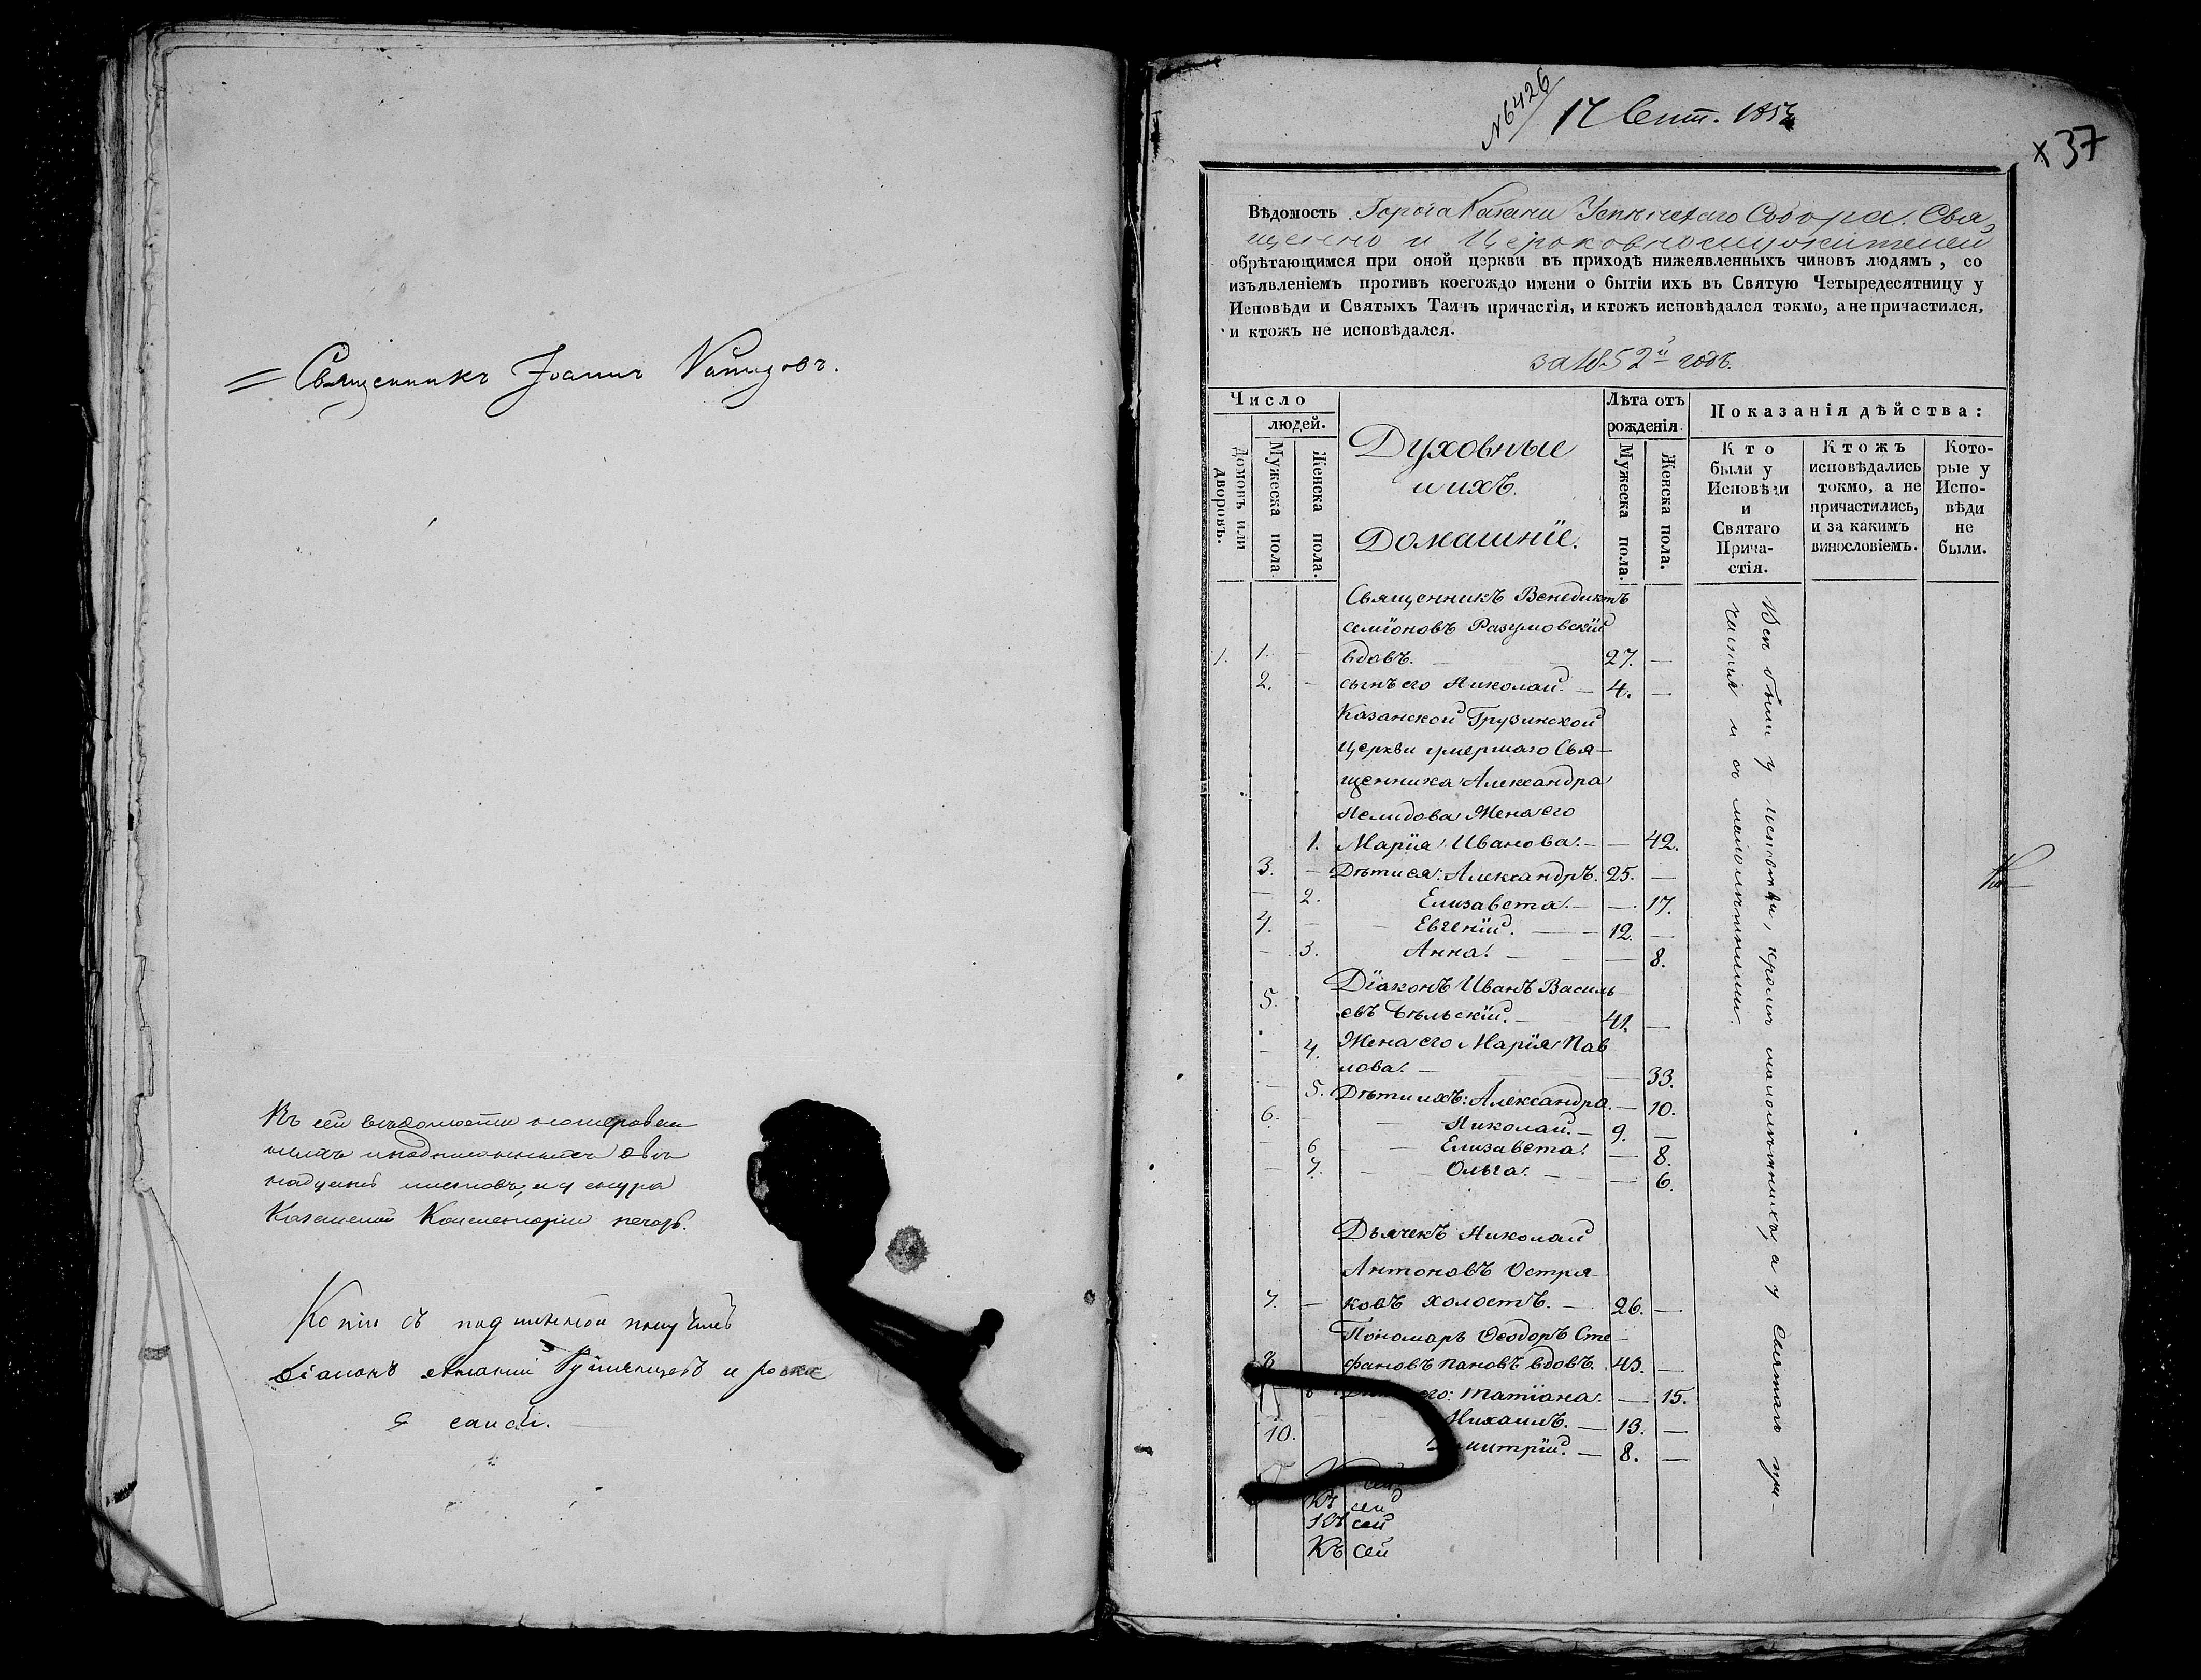 Священникъ Іоаннъ
Къ сей вѣдомости
листовъ, и у снура
Казанской Консисторіи печать.
Копію съ подлинной получилъ
діаконъ
№6426
17 Сент. 1852
х 37
Вѣдомость Города Казани Собора. Свя
щенно и Церковнослужителей
обрѣтающимся при оной церкви въ приходѣ нижеявленныхъ чиновъ людямъ, со
изъявленіемъ противъ коегождо имени о бытіи ихъ въ Святую Четыредесятницу у
Исповѣди и Святыхъ Таинъ причастія, и ктожъ исповѣдался токмо, а не причастился,
и ктожъ не исповѣдался.
за 1852й годъ.
Число
людей.
Домовъ или дворовъ.
Мужеска пола
Женска пола.
Духовные
и ихъ
Домашніе.
Лѣта отъ
рожденія.
Мужеска пола.
Женска пола.
Показанія дѣйства:
Кто
были у
Исповѣди
и
Святаго
Прича-
стія.
Ктожъ
исповѣдались
токмо, а не
причастились,
и за какимъ
винословіемъ.
Кото-
рые у
Испо-
вѣди
не
были.
Священникъ Венедиктъ
Семіоновъ Разумовскій
1. 1. — вдовъ. — 27. —
2. — сынъ его Николай. — 4. —
Казанской Грузинской
Церкви умершаго Свя-
щенника Александра
Нелидова Жена его
1. Марія Иванова. — — 42.
3. — Дѣти ея: Александръ. 25. —
— 2. Елизавета. — — 17.
4. — Евгеній. — 12. —
— 3. Анна. — — 8.
Діаконъ Иванъ Василь
5. евъ Бѣльскій. — 41. —
— 4. Жена его Марія Пав
лова. — — 33.
— 5. Дѣти ихъ: Александра. — 10.
6. — Николай. — 9. —
— 6 Елизавета. — 8.
— 7. Ольга. — — 6.
Дьячекъ Николай
Антоновъ Остря-
7. — ковъ холостъ. — 26. —
Пономарь Ѳеодоръ Сте
8 фановъ Пановъ вдовъ. 43. —
8 его: Татіана. — 15.
Михаилъ. — 13. —
10. митрій. — 8. —
сей
Къ сей
Къ сей
Къ сей
Всѣ были у исповѣди, кромѣ малолѣтнихъ, а у Святаго при-
частія и съ малолѣтними.